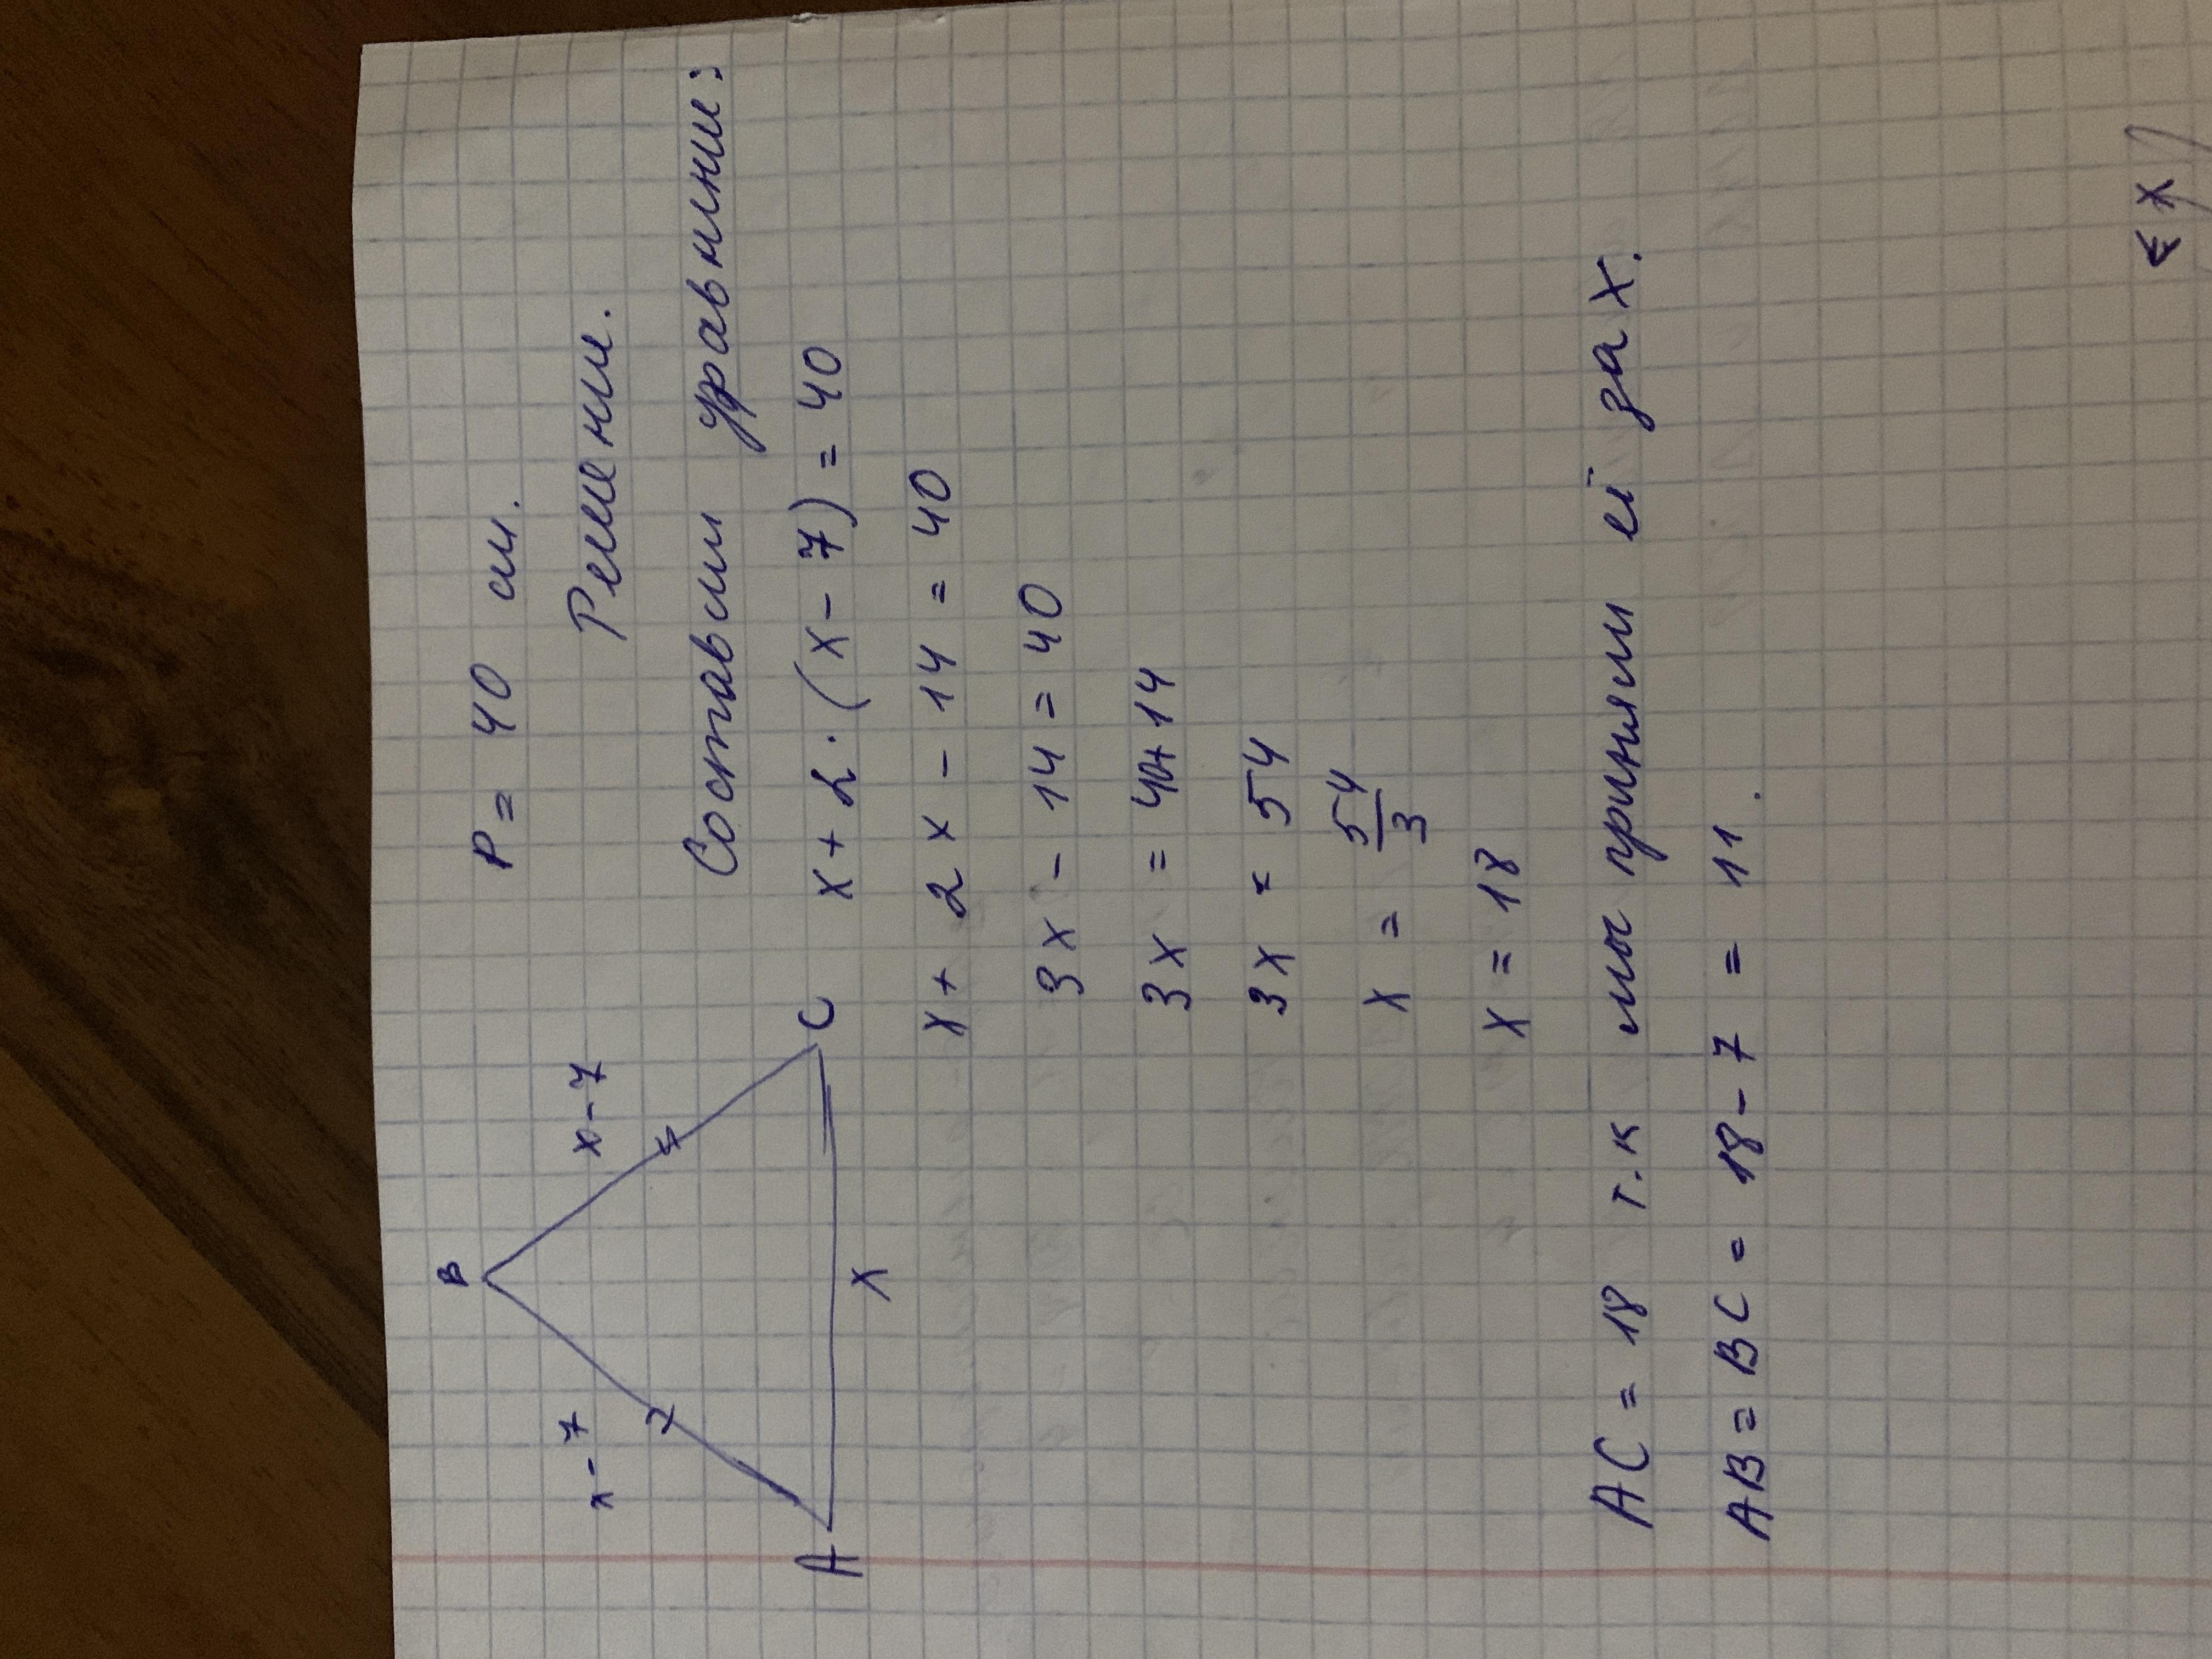 B
P = 40 см.
x-7
x-7
Решение.
Составим уравнение:
A
C
x
x + 2 · (x - 7) = 40
x + 2x - 14 = 40
3x - 14 = 40
3x = 40+14
3x = 54
x = 54/3
x = 18
AC = 18 т.к мы приняли её за x.
AB = BC = 18 - 7 = 11.